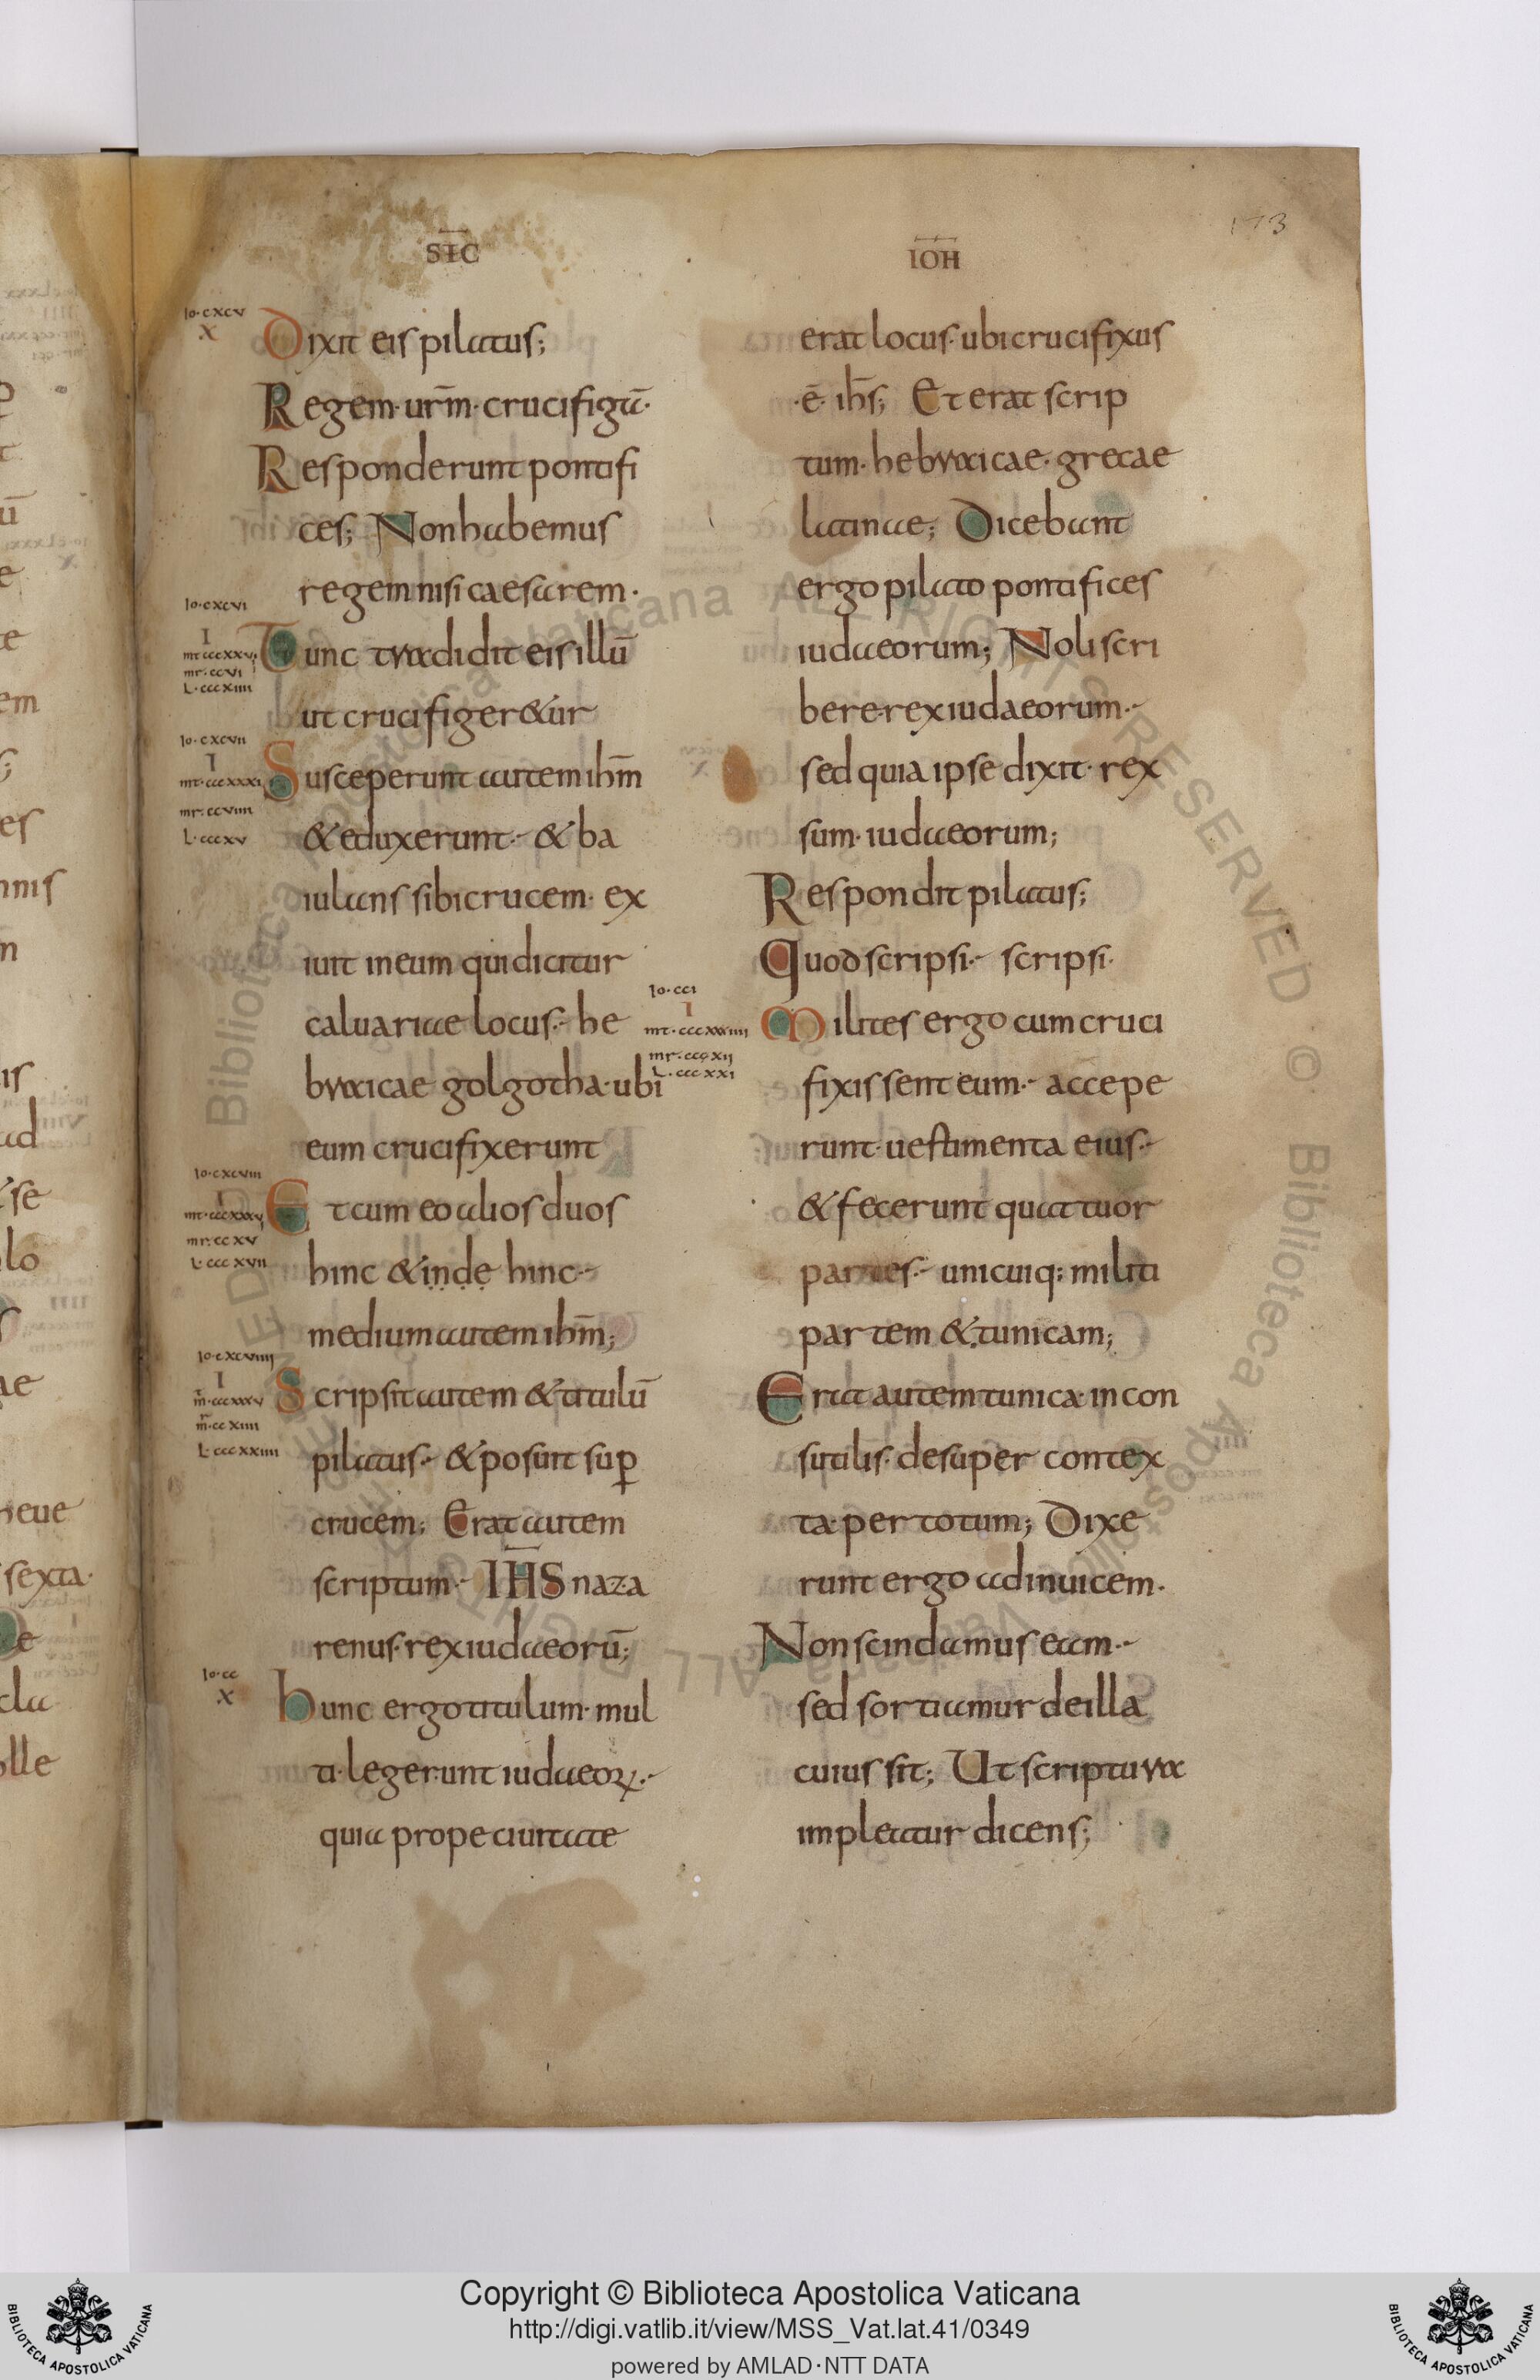 173
SIC
IOH
Io·cxcv
X
Dixit eis pilatus;
Regem·ur̄m·crucifigā·
Responderunt pontifi
ces; Non habemus
regem nisi caesarem·
Io·cxcvi
I
mt·cccxxvi
mr·ccvi
L·cccxiiii
Tunc tradidit eis illū
ut crucifiger&ur
Io·cxcvii
I
mt·cccxxxi
mr·ccviiii
L·cccxv
Susceperunt autem ihm̄
& eduxerunt·& ba
iulans sibi crucem· ex
iuit in eum qui dicitur
caluariae locus· he
braicae golgotha·ubi
eum crucifixerunt
Io·cxcviii
I
mt·cccxxxv
mr·ccxv
L·cccxvii
Et cum eo alios duos
hinc & inde hinc·
medium autem ihm̄;
Io·cxcviiii
I
m̄·cccxxxv
m̄·ccxiiii
L·cccxxiiii
Scripsit autem & titulū
pilatus·& posuit sup̱
crucem; Erat autem
scriptum· IH̄S naza
renus·rex iudaeorū;
Io·cc
X
hunc ergo titulum·mul
ti·legerunt iudaeoꝝ·
quia prope ciuitate
erat locus·ubi crucifixus
·ē· ihs̄; Et erat scrip
tum·hebraicae·grecae
latinae; Dicebant
ergo pilato pontifices
iudaeorum; Noli scri
bere·rex iudaeorum·
sed quia ipse dixit·rex
sum·iudaeorum;
Respondit pilatus;
Quod scripsi· scripsi·
Io·cci
I
mt·cccxxxiiii
mr·cccxii
L·cccxxi
Milites ergo cum cruci
fixissent eum· accepe
runt·uestimenta eius·
& fecerunt quattuor
partes· unicuiq; militi
partem & tunicam;
Erat autem tunica·incon
sutilis·desuper contex
ta·per totum; Dixe
runt ergo ad inuicem·
Non scindamus eam·
sed sortiamur de illa
cuius sit; Ut scriptura
impleatur dicens;
Copyright © Biblioteca Apostolica Vaticana
http://digi.vatlib.it/view/MSS_Vat.lat.41/0349
powered by AMLAD·NTT DATA
BIBLIOTECA APOSTOLICA VATICANA
BIBLIOTECA APOSTOLICA VATICANA